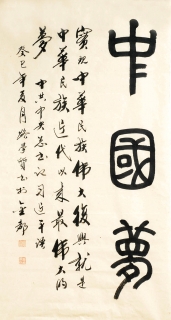 中國夢
實現中華民族偉大復興就是
中華民族近代以來最偉大的
夢 中共中央總書記習近平語
癸巳年夏月 書於金都